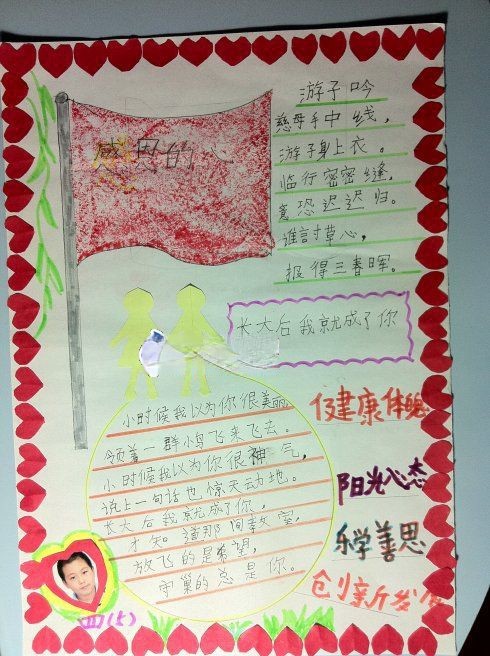 感恩的心
游子吟
慈母手中线，
游子身上衣。
临行密密缝，
意恐迟迟归。
谁言寸草心，
报得三春晖。
长大后我就成了你
小时候我以为你很美丽
领着一群小鸟飞来飞去。
小时候我以为你很神气，
说上一句话也惊天动地。
长大后我就成了你，
才知道那间教室，
放飞的是希望，
守巢的总是你。
健康体魄
阳光心态
乐学善思
创新发展
四(5)